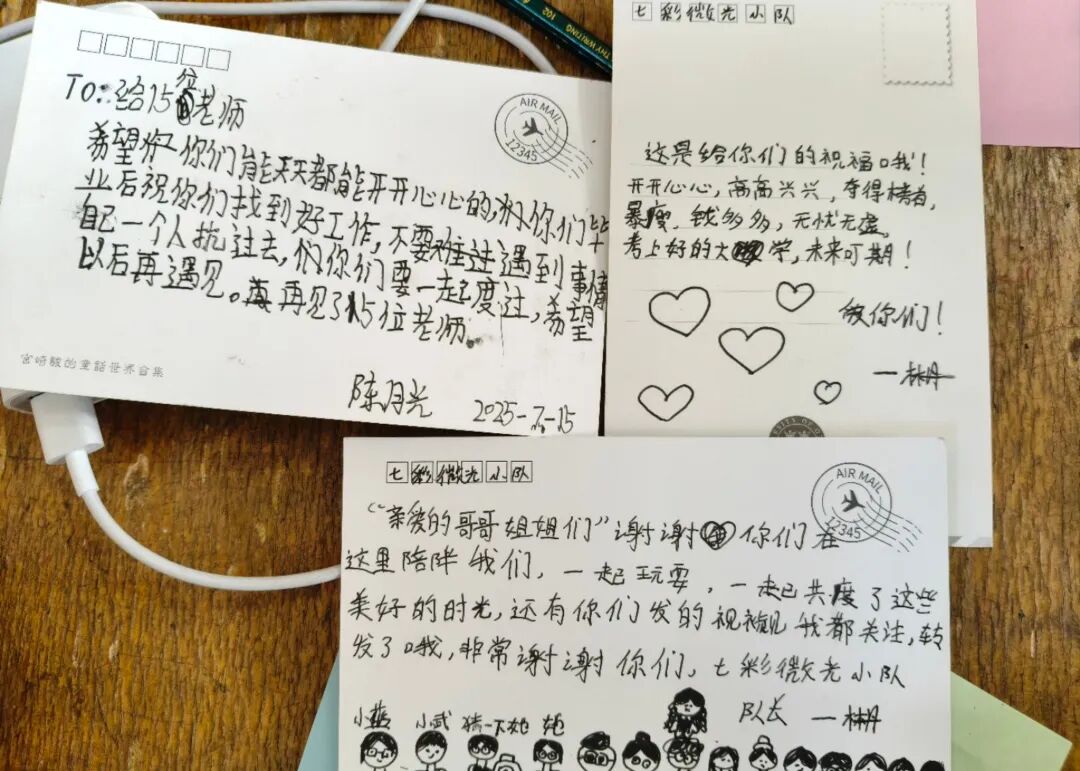 THY WRITING 102
To:给15位老师
希望你们能天天都能开开心心的,你们毕
业后祝你们找到好工作,不要难过遇到事情
自己一个人抗过去,你们要一起度过,希望
以后再遇见。再见了15位老师.
陈月光 2025-7-15
宫崎骏的童話世界合集
AIR MAIL
12345
七彩微光小队
这是给你们的祝福哦!
开开心心,高高兴兴,夺得榜首,
暴瘦,钱多多,无忧无虑,
考上好的大学,未来可期!
你们!
七彩微光小队
AIR MAIL
12345
“亲爱的哥哥姐姐们”谢谢你们在
这里陪伴我们,一起玩耍,一起共度了这些
美好的时光,还有你们发的视频我都关注,转
发了哦,非常谢谢你们,七彩微光小队
队长
小蓝 小武 猜一下她 她